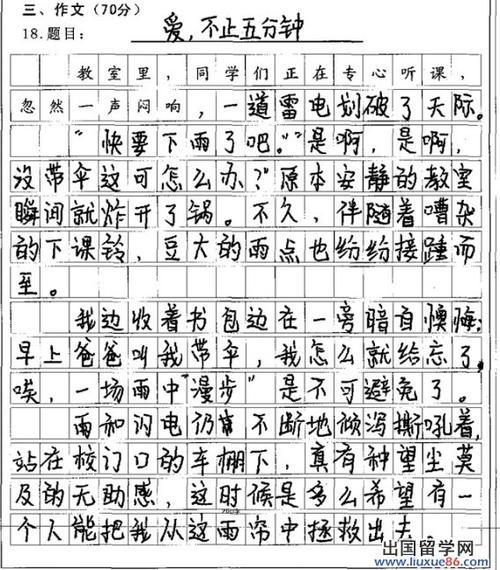 三、作文（70分）
18.题目：爱,不止五分钟
教室里，同学们正在专心听课，
忽然一声闷响，一道雷电划破了天际。
“快要下雨了吧。”是啊，是啊，
没带伞这可怎么办？”原本安静的教室
瞬间就炸开了锅。不久，伴随着嘈杂
的下课铃，豆大的雨点也纷纷接踵而
至。
我边收着书包边在一旁暗自懊悔：
早上爸爸叫我带伞，我怎么就给忘了，
唉，一场雨中“漫步”是不可避免了。
雨和闪电仍常不断地倾泻撕吼着，
站在校门口的车棚下，真有种望尘莫
及的无助感，这时候是多么希望有一
个人能把我从这雨帘中拯救出去。
出国留学网
www.liuxue86.com